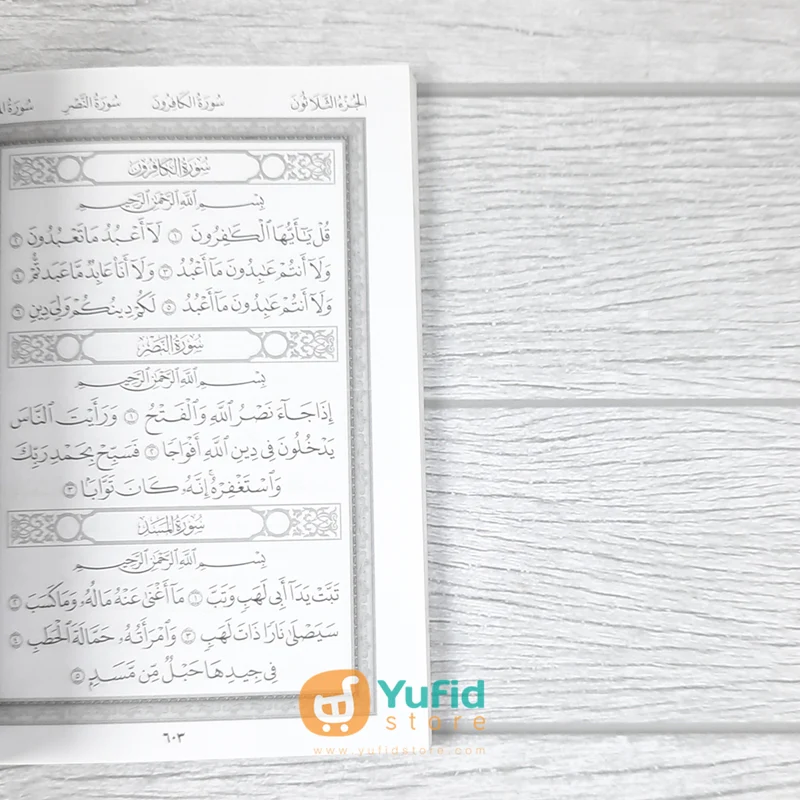 الجُزْءُ الثَّلَاثُونَ سُورَةُ الكَافِرُونَ سُورَةُ النَّصْرِ سُورَةُ
سُورَةُ الكَافِرُونَ
بِسْمِ ٱللَّهِ ٱلرَّحْمَٰنِ ٱلرَّحِيمِ
قُلْ يَٰٓأَيُّهَا ٱلْكَٰفِرُونَ ١ لَآ أَعْبُدُ مَا تَعْبُدُونَ ٢
وَلَآ أَنتُمْ عَٰبِدُونَ مَآ أَعْبُدُ ٣ وَلَآ أَنَا۠ عَابِدٌ مَّا عَبَدتُّمْ ٤
وَلَآ أَنتُمْ عَٰبِدُونَ مَآ أَعْبُدُ ٥ لَكُمْ دِينُكُمْ وَلِيَ دِينِ ٦
سُورَةُ النَّصْرِ
بِسْمِ ٱللَّهِ ٱلرَّحْمَٰنِ ٱلرَّحِيمِ
إِذَا جَآءَ نَصْرُ ٱللَّهِ وَٱلْفَتْحُ ١ وَرَأَيْتَ ٱلنَّاسَ
يَدْخُلُونَ فِي دِينِ ٱللَّهِ أَفْوَاجًا ٢ فَسَبِّحْ بِحَمْدِ رَبِّكَ
وَٱسْتَغْفِرْهُ إِنَّهُۥ كَانَ تَوَّابًۢا ٣
سُورَةُ المَسَدِ
بِسْمِ ٱللَّهِ ٱلرَّحْمَٰنِ ٱلرَّحِيمِ
تَبَّتْ يَدَآ أَبِي لَهَبٍ وَتَبَّ ١ مَآ أَغْنَىٰ عَنْهُ مَالُهُۥ وَمَا كَسَبَ ٢
سَيَصْلَىٰ نَارًا ذَاتَ لَهَبٍ ٣ وَٱمْرَأَتُهُۥ حَمَّالَةَ ٱلْحَطَبِ ٤
فِي جِيدِهَا حَبْلٌ مِّن مَّسَدٍۭ ٥
٦٠٣
Yufid
store
www.yufidstore.com